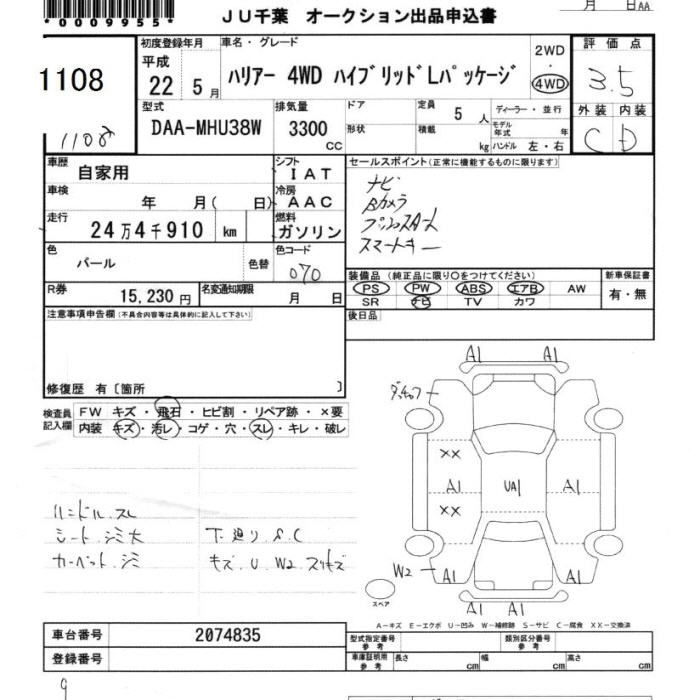 *0009955*
JU千葉 オークション出品申込書
月 日AA
1108
1108
初度登録年月
平成
22 5月
車名・グレード
ハリアー 4WD ハイブリッドLパッケージ
2WD
・
4WD
評価点
3.5
外装 内装
C D
型式
DAA-MHU38W
排気量
3300
CC
ドア
形状
定員 5 人
積載 kg
ディーラー・並行
モデル年式 年
ハンドル 左・右
車歴
自家用
シフト
IAT
車検
年 月( 日)
冷房
AAC
走行
24万4千910 km
燃料
ガソリン
色
パール
色替
色コード
070
R券
15,230円
名変通知期限
月 日
セールスポイント(正常に機能するものに限ります)
ナビ
Bカメラ
プッシュスタート
スマートキー
装備品(純正品に限り○をつけてください)
PS PW ABS エアB AW
SR ナビ TV カワ
新車保証書
有・無
後日品
注意事項申告欄(不具合内容等は具体的に記入して下さい)
修復歴 有〔箇所 〕
検査員記入欄
FW キズ・飛石・ヒビ割・リペア跡・×要
内装 キズ・汚レ・コゲ・穴・スレ・キレ・破レ
ハンドル スレ
シート シミ大
カーペット シミ
下廻り S.C
キズ U W2 スリキズ
A1 A1
XX
A1 UA1 A1
XX
W2 A1 A1
A1 A1
スペア
A−キズ E−エクボ U−凹み W−補修跡 S−サビ C−腐食 XX−交換済
車台番号 2074835
登録番号
型式指定番号
参考
類別区分番号
参考
車庫証明用
参考
長さ cm 幅 cm 高さ cm
9